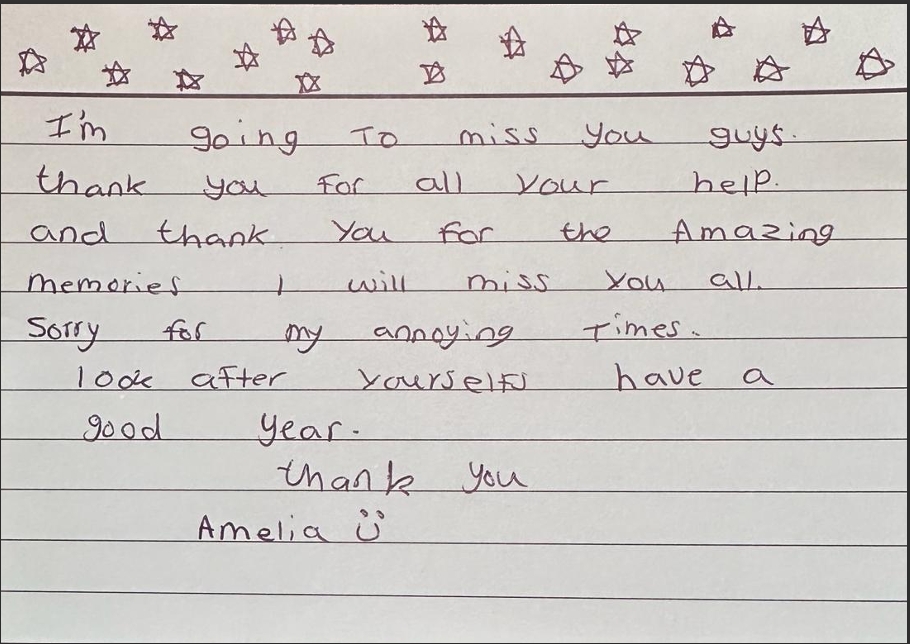 I'm going To miss you guys.
thank you for all your help.
and thank you for the Amazing
memories I will miss you all.
Sorry for my annoying Times.
look after yourselfs have a
good year.
thank you
Amelia